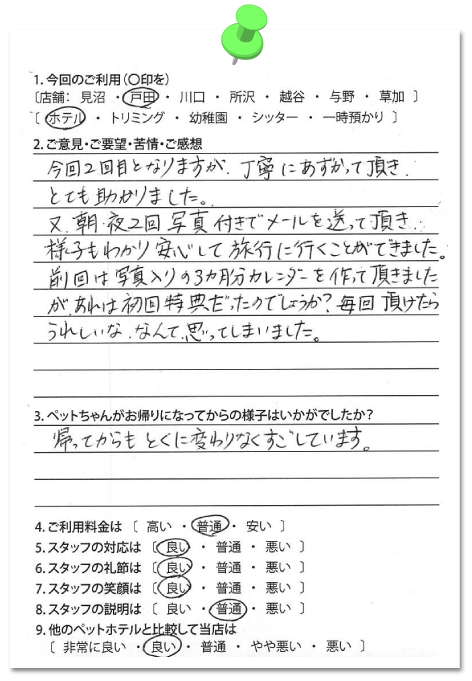 1. 今回のご利用(〇印を)
〔店舗： 見沼 ・ 戸田 ・ 川口 ・ 所沢 ・ 越谷 ・ 与野 ・ 草加 〕
〔 ホテル ・ トリミング ・ 幼稚園 ・ シッター ・ 一時預かり 〕
2. ご意見・ご要望・苦情・ご感想
今回2回目となりますが、丁寧にあずかって頂き、
とても助かりました。
又、朝・夜2回写真付きでメールを送って頂き、
様子もわかり安心して旅行に行くことができました。
前回は写真入りの3カ月分カレンダーを作って頂きました
が、あれは初回特典だったのでしょうか？毎回頂けたら
うれしいな、なんて、思ってしまいました。
3. ペットちゃんがお帰りになってからの様子はいかがでしたか？
帰ってからもとくに変わりなくすごしています。
4. ご利用料金は 〔 高い ・ 普通 ・ 安い 〕
5. スタッフの対応は 〔 良い ・ 普通 ・ 悪い 〕
6. スタッフの礼節は 〔 良い ・ 普通 ・ 悪い 〕
7. スタッフの笑顔は 〔 良い ・ 普通 ・ 悪い 〕
8. スタッフの説明は 〔 良い ・ 普通 ・ 悪い 〕
9. 他のペットホテルと比較して当店は
〔 非常に良い ・ 良い ・ 普通 ・ やや悪い ・ 悪い 〕